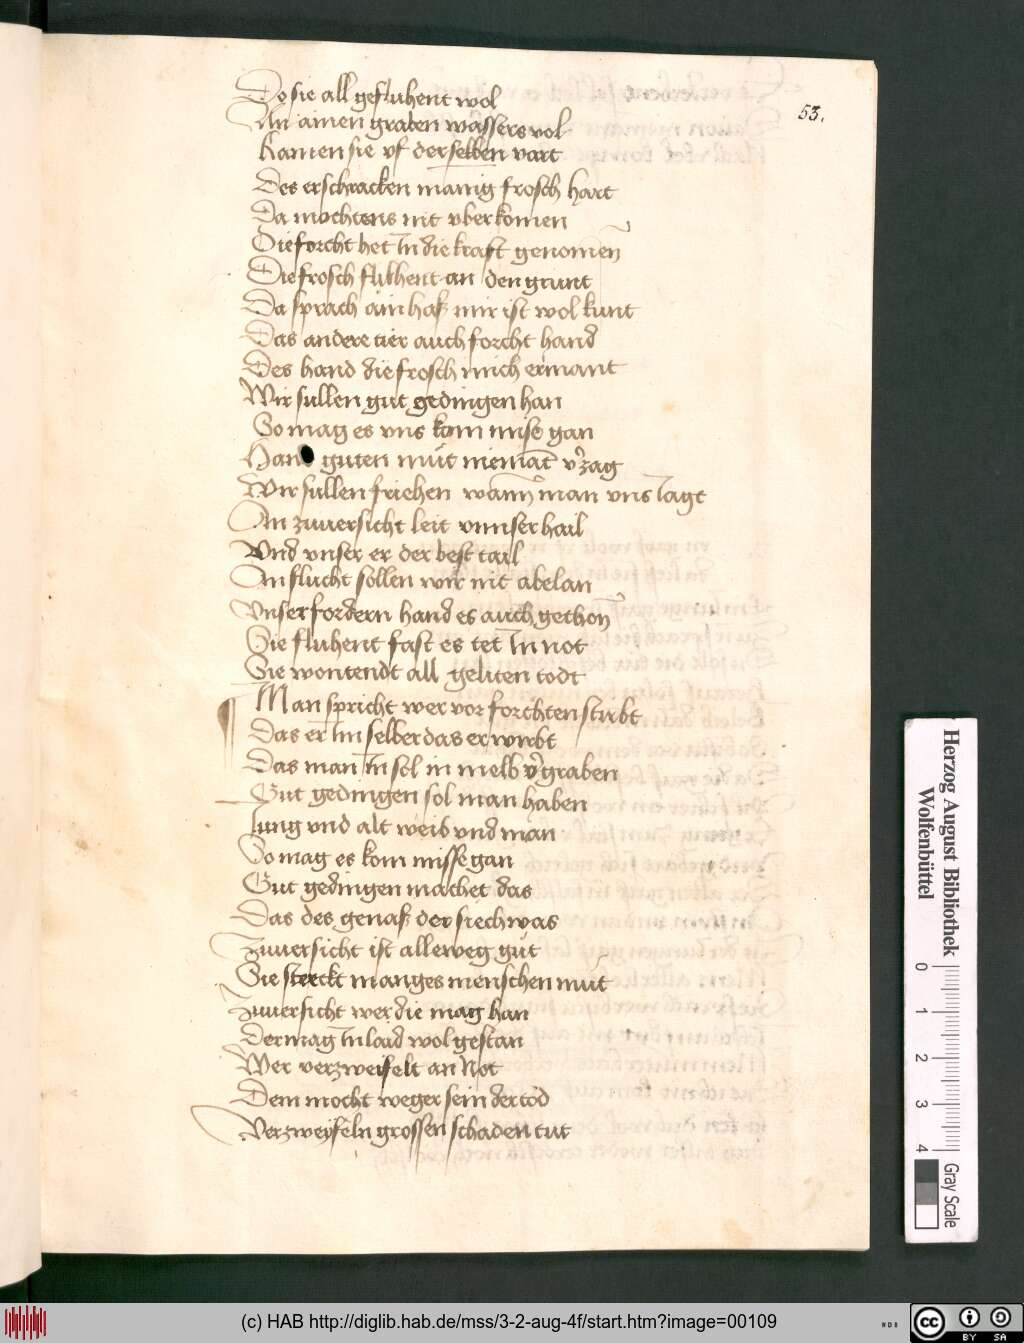 53.
Do sie all gefluhent wol
An ainen graben wassers vol
Kamen sie vf der selben vart
Des erschracken manig frosch hart
Da mochtens nit vberkomen
Die forcht het In die kraft genomen
Die frosch fluhent an den grunt
Da sprach ain haß mir ist wol kunt
Das andere tier auch forcht hand
Des hand die frosch mich ermant
Wir sullen gut gedingen han
So mag es vns kom misse gan
Hand guten mut niemat vzag
Wir sullen friehen wann man vns Iagt
An zuuersicht leit vnnser hail
Vnd vnser er der best tail
An flucht sollen wir nit abelan
Vnser fordern hand es auch gethon
Sie fluhent fast es tet In not
Sie wontendt all geliten todt
Man spricht wer vor forchten stirbt
Das er Im selber das erwirbt
Das man In sol in melb vgraben
Gut gedingen sol man haben
Iung vnd alt weib vnd man
So mag es kom misse gan
Gut gedingen machet das
Das des genaß der siech was
Zuuersicht ist alleweg gut
Sie sterckt manges menschen mut
Zuuersicht wer die mag han
Der mag In laid wol gestan
Wer verzweifelt an Not
Dem mocht weger sein der tod
Verzweyfeln grossen schaden tut
Herzog August Bibliothek
Wolfenbüttel
0 1 2 3 4
Gray Scale
(c) HAB http://diglib.hab.de/mss/3-2-aug-4f/start.htm?image=00109
WDB
cc BY SA